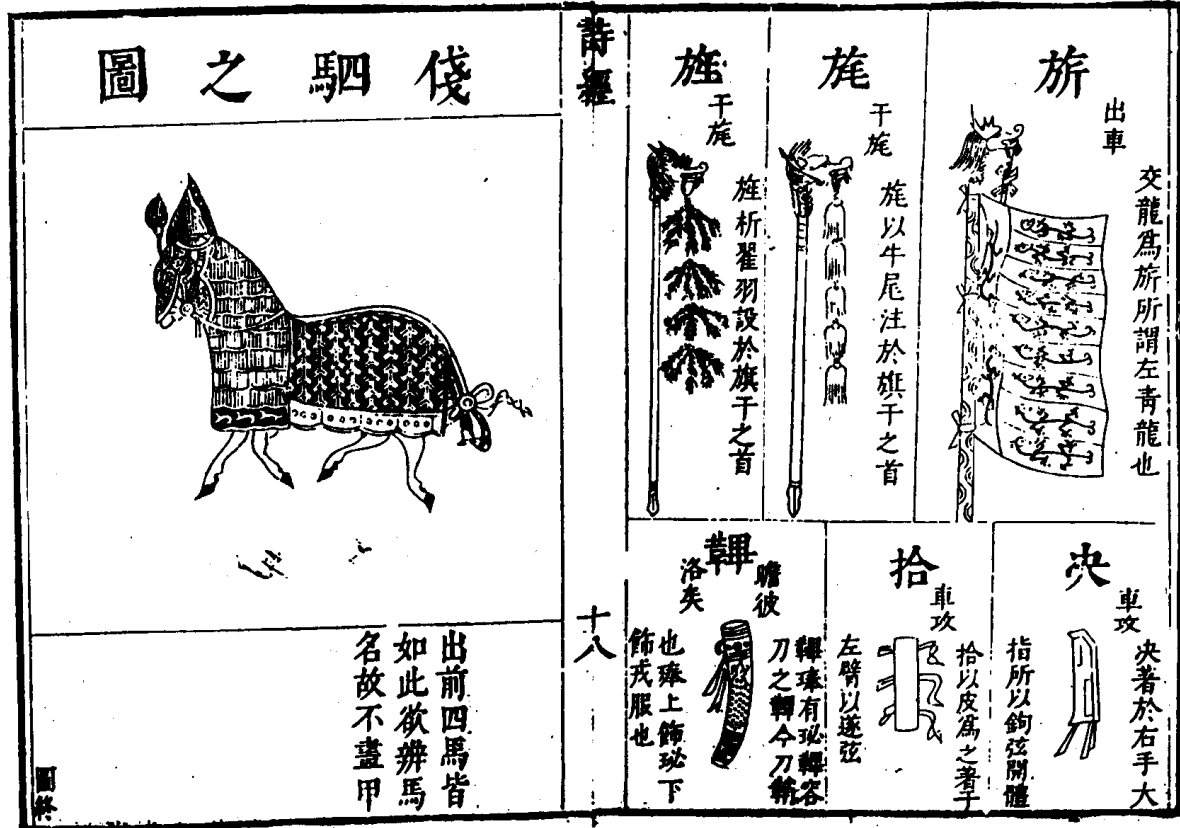 旂
出車
交龍為旂所謂左青龍也
旄
干旄
旄以牛尾注於旗干之首
旌
干旄
旌析翟羽設於旗干之首
决
車攻
决著於右手大
指所以鉤弦開體
拾
車攻
拾以皮為之著于
左臂以遂弦
鞞
瞻彼
洛矣
鞞琫有珌鞞容
刀之鞞今刀鞘
也琫上飾珌下
飾戎服也
詩經
十八
俴駟之圖
出前四馬皆
如此欲辨馬
名故不盡甲
圖終